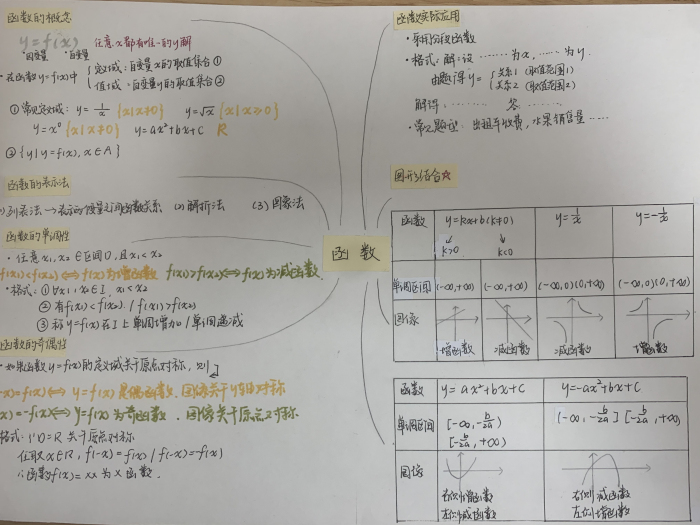 函数的概念
y=f(x) 任意x都有唯一的y解
因变量 自变量
·在函数y=f(x)中 { 定义域:自变量x的取值集合①
值域:因变量y的取值集合②
①常见定义域: y=1/x {x|x≠0} y=√x {x|x≥0}
y=x⁰ {x|x≠0} y=ax²+bx+c R
②{y|y=f(x), x∈A}
函数的表示法
)列表法→表示两变量之间函数关系 (2)解析法 (3)图象法
函数的单调性
·任意x₁,x₂∈区间D,且x₁<x₂
f(x₁)<f(x₂)⟺f(x)为增函数 f(x₁)>f(x₂)⟺f(x)为减函数.
·格式:①∀x₁,x₂∈I, x₁<x₂
②有f(x₁)<f(x₂). / f(x₁)>f(x₂)
③称y=f(x)在I上单调增加/单调递减
函数的奇偶性
·如果函数y=f(x)的定义域关于原点对称,则
-x)=f(x)⟺y=f(x)是偶函数.图像关于y轴对称
x)=-f(x)⟺y=f(x)为奇函数.图像关于原点对称
格式:1°D=R 关于原点对称
任取x∈R, f(-x)=f(x)/f(-x)=-f(x)
∴函数f(x)=xx为x函数.
函数
函数实际应用
·采用分段函数
·格式:解:设……为x,……为y.
由题得y={ 关系1 (取值范围1)
关系2 (取值范围2)
解得:……… 答………
·常见题型:出租车收费,水果销售量……
图形结合☆
函数 y=kx+b(k≠0) y=1/x y=-1/x
k>0 k<0
单调区间 (-∞,+∞) (-∞,+∞) (-∞,0)(0,+∞) (-∞,0)(0,+∞)
图像
增函数 减函数 减函数 增函数
函数 y=ax²+bx+c y=-ax²+bx+c
单调区间 [-∞,-b/2a) (-∞,-b/2a] [-b/2a,+∞)
[-b/2a,+∞)
图像
右侧增函数 右侧减函数
左侧减函数 左侧增函数